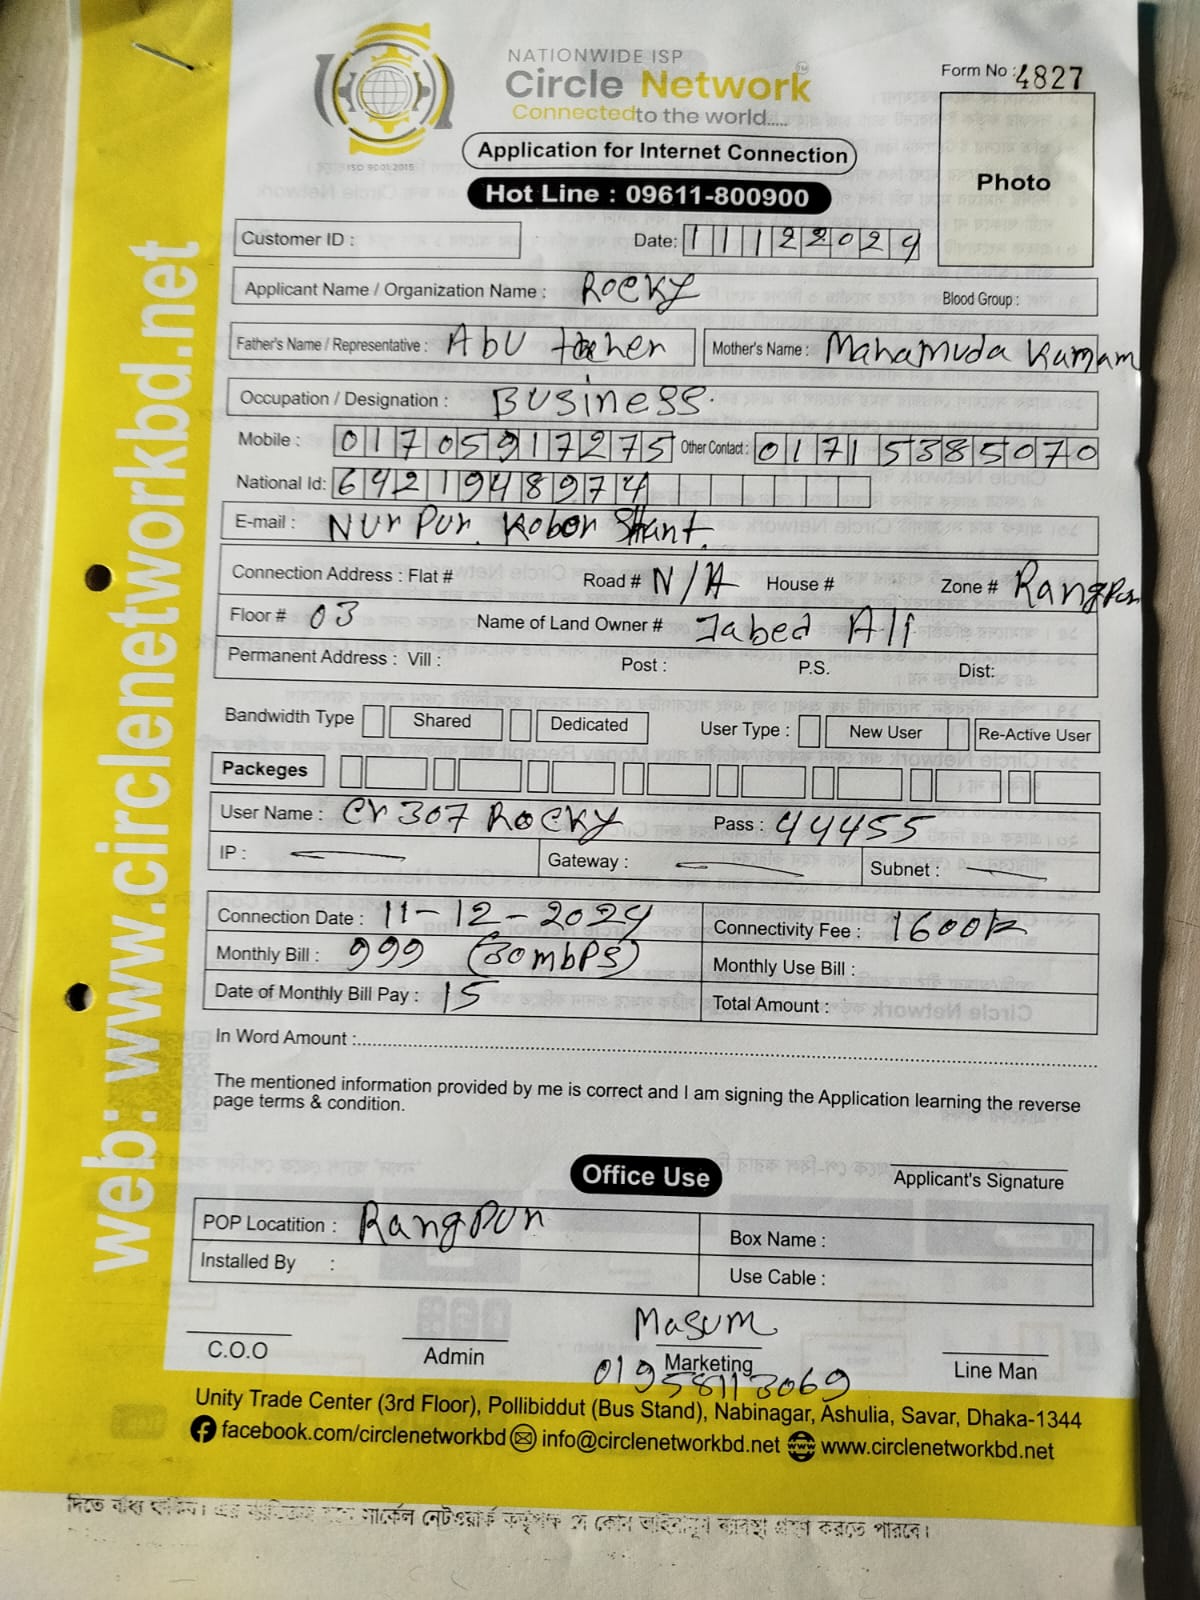 NATIONWIDE ISP
Circle Network TM
Connected to the world.....
ISO 9001:2015
Form No : 4827
Application for Internet Connection
Hot Line : 09611-800900
Photo
Customer ID :
Date: 11122024
Applicant Name / Organization Name : Rocky
Blood Group :
Father's Name / Representative : Abu taher
Mother's Name : Mahamuda
Occupation / Designation : Business.
Mobile : 01705917275 Other Contact : 01715385070
National Id: 6421948974
E-mail : Nur Pur. Kobor
Connection Address : Flat # Road # N/A House # Zone # Rangpur
Floor # 03 Name of Land Owner # Jabed Ali
Permanent Address : Vill : Post : P.S. Dist:
Bandwidth Type Shared Dedicated User Type : New User Re-Active User
Packeges
User Name : Cr307 Rocky Pass : 44455
IP : — Gateway : — Subnet : —
Connection Date : 11-12-2024 Connectivity Fee : 1600
Monthly Bill : 999 (30mbps) Monthly Use Bill :
Date of Monthly Bill Pay : 15 Total Amount :
In Word Amount :
The mentioned information provided by me is correct and I am signing the Application learning the reverse
page terms & condition.
Office Use
Applicant's Signature
POP Locatition : Rangpur
Box Name :
Installed By :
Use Cable :
Masum
C.O.O Admin Marketing Line Man
01958113069
Unity Trade Center (3rd Floor), Pollibiddut (Bus Stand), Nabinagar, Ashulia, Savar, Dhaka-1344
facebook.com/circlenetworkbd info@circlenetworkbd.net www.circlenetworkbd.net
web: www.circlenetworkbd.net
দিতে বাধ্য সার্কেল নেটওয়ার্ক কোন ব্যবস্থা গ্রহণ করতে পারবে।